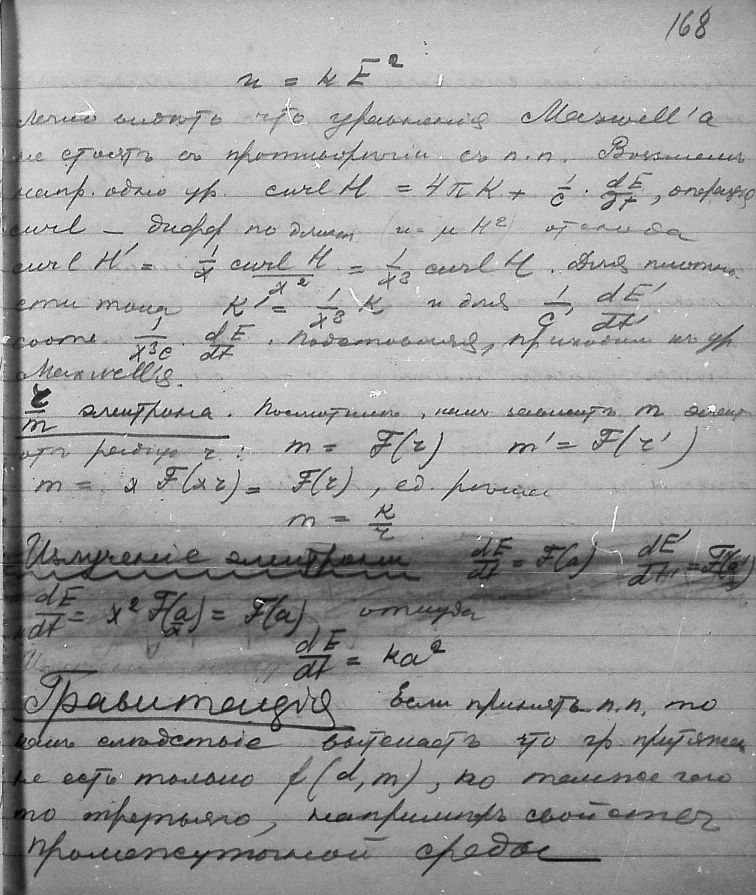 168
u = k E²
легко видѣть что уравненія Maxwell'a
не стоятъ въ противорѣчіи съ п.п. Возьмемъ
напр. одно ур. curl H = 4πK + 1/c · dE/dt, операція
curl — дифф по длинѣ (u = μH²) отсюда
curl H' = 1/x curl H/x² = 1/x³ curl H. Для плотно
сти тока K' = 1/x³ K и для 1/c, dE'/dt'
соотв. 1/x³c · dE/dt. Подставляя, приходимъ къ ур
Maxwell'я.
r/m электрона. Посмотримъ, какъ зависитъ m элект
отъ радіуса r: m = F(r) m' = F(r')
m = x F(xr) = F(r), ед. рѣшеніе
m = K/r
Излученіе электрона dE/dt = F(a) dE'/dt' = F(a')
dE/dt = x² F(a/x) = F(a) откуда
dE/dt = ka²
Гравитація Если принять п.п, то
какъ слѣдствіе вытекаетъ что гр. притяжен
не есть только f(d, m), но также чего
то третьяго, напримѣръ свойствъ
промежуточной среды